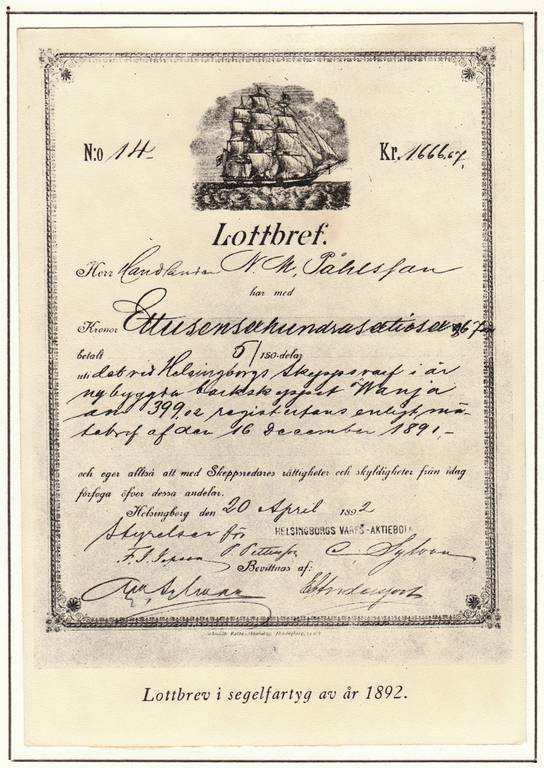 N:o 14
Kr. 1666.67.
Lottbref.
Herr Handlanden N. M. Påhlsson
har med
Kronor Ettusensexhundrasextiosex 67 öre
betalt 5/150-delar
uti det vid Helsingborgs Skeppsvarf i år
nybyggda barkskeppet "Wanja"
om 399,02 registertons enligt mä-
tebref af den 16 December 1891.-
och eger alltså att med Skeppsredares rättigheter och skyldigheter från idag
förfoga öfver dessa andelar.
Helsingborg den 20 April 1892
Styrelsen för HELSINGBORGS VARFS-AKTIEBOL
P. Pettersson C. Sylvan
Bevittnas af:
Lottbrev i segelfartyg av år 1892.